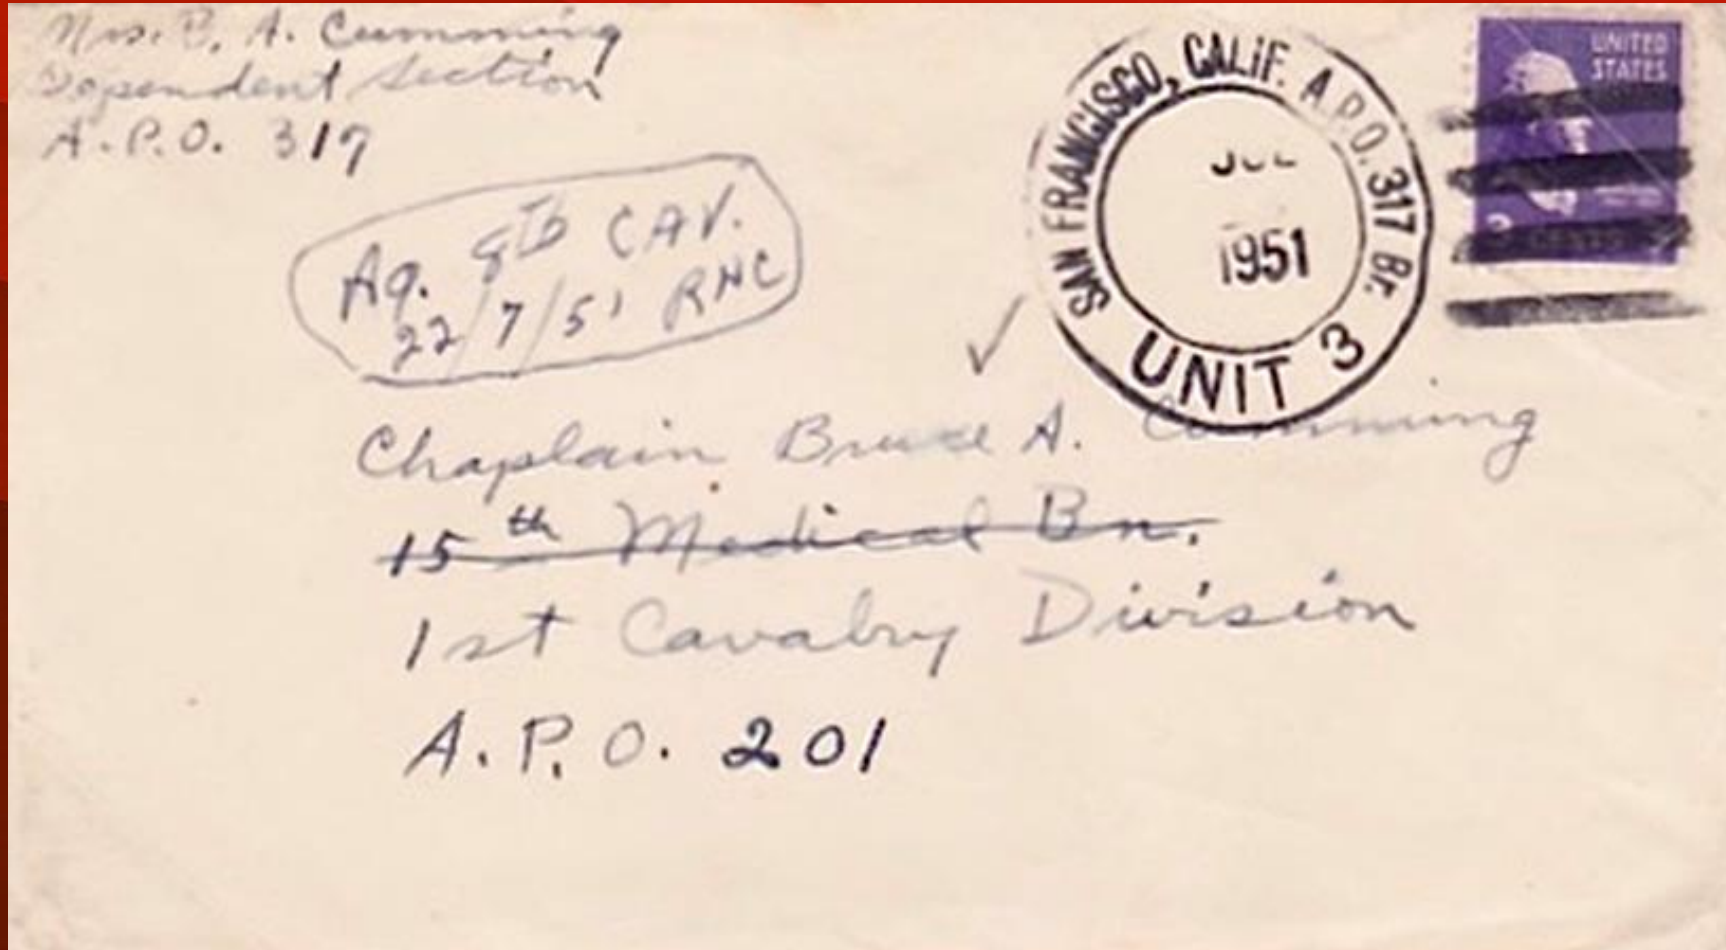 Mrs. B. A. Cumming
Dependent Section
A.P.O. 317
UNITED
STATES
SAN FRANCISCO, CALIF. A.P.O. 317 Br.
JUL
1951
UNIT 3
8th CAV.
22/7/51 RHC
Chaplain Bruce A. Cumming
15th Medical Bn.
1st Cavalry Division
A.P.O. 201